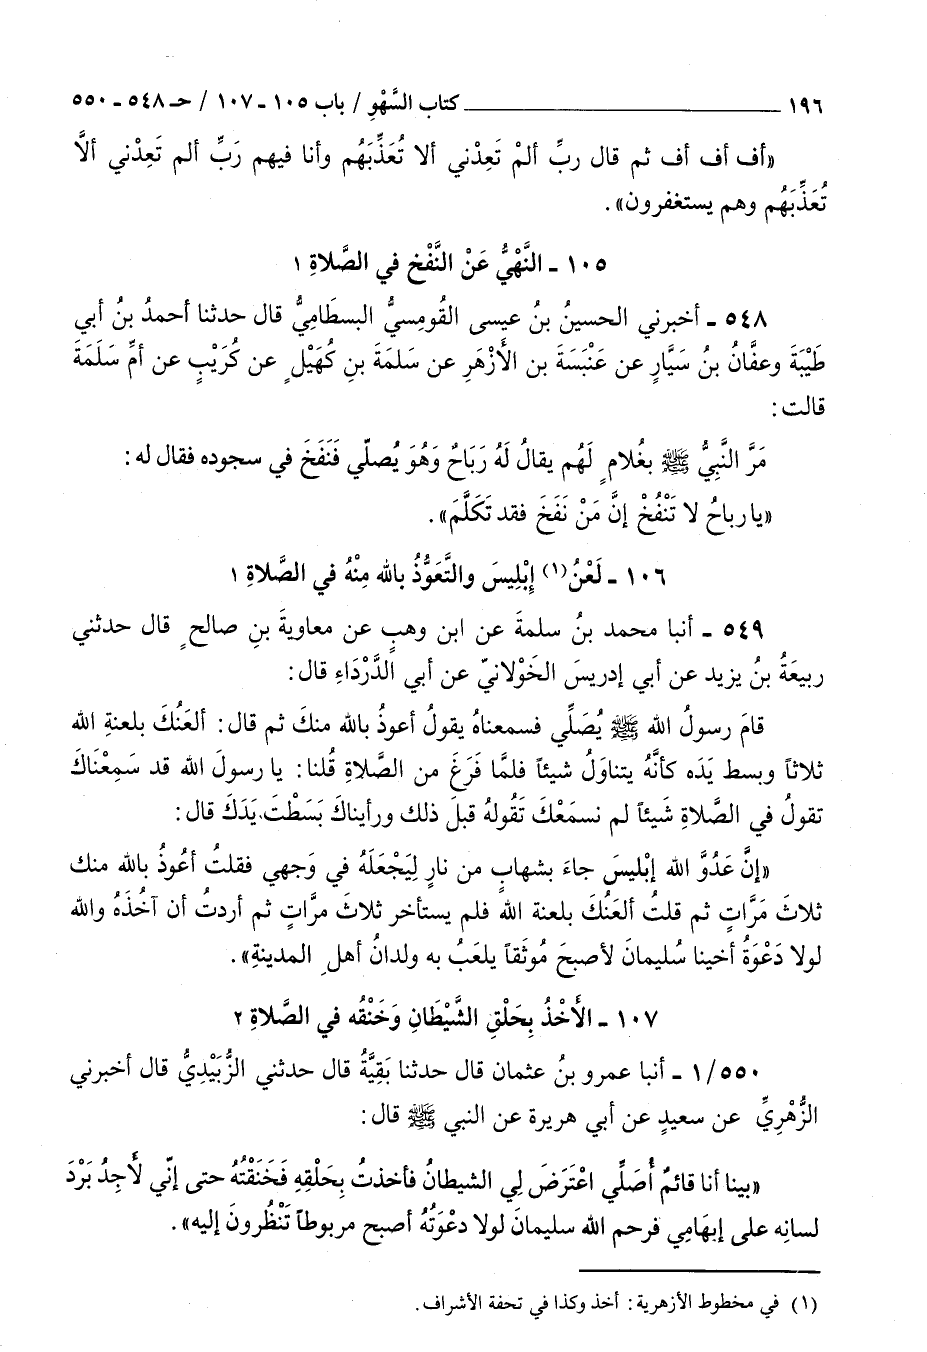 ١٩٦ ـــــــــــــــــ كتاب السَّهْوِ / باب ١٠٥ - ١٠٧ / حـ ٥٤٨ - ٥٥٠
«أف أف أف ثم قال ربِّ ألمْ تَعِدْني ألا تُعَذِّبَهُم وأنا فيهم رَبِّ ألم تَعِدْني ألاَّ
تُعَذِّبَهُم وهم يستغفرون».
١٠٥ - النَّهْيُ عَنْ النَّفْخِ في الصَّلاةِ ١
٥٤٨ - أخبرني الحسينُ بنُ عيسى القُومِسيُّ البسطَاميُّ قال حدثنا أحمدُ بنُ أبي
طَيْبَةَ وعفَّان بنُ سَيَّارٍ عن عَنْبَسَةَ بن الأَزْهَرِ عن سَلمَةَ بنِ كُهَيْلٍ عن كُرَيْبٍ عن أمِّ سَلَمَةَ
قالت:
مَرَّ النَّبيُّ ﷺ بغُلامٍ لَهُم يقالُ لَهُ رَبَاحٌ وَهُوَ يُصلّي فَنَفَخَ في سجوده فقال له:
«يا رباحُ لا تَنْفُخْ إنَّ مَنْ نَفَخَ فقد تَكَلَّمَ».
١٠٦ - لَعْنُ (١) إِبْلِيسَ والتَّعَوُّذُ بالله مِنْهُ في الصَّلاةِ ١
٥٤٩ - أنبا محمد بنُ سلمةَ عن ابن وهبٍ عن معاويةَ بنِ صالحٍ قال حدثني
ربيعَةُ بنُ يزيد عن أبي إدريسَ الخَوْلانيّ عن أبي الدَّرْدَاءِ قال:
قامَ رسولُ الله ﷺ يُصَلِّي فسمعناهُ يقولُ أعوذُ بالله منكَ ثم قال: ألعَنُكَ بلعنةِ الله
ثلاثاً وبسط يَدَه كأنَّهُ يتناوَلُ شيئاً فلمَّا فرَغَ من الصَّلاةِ قُلنا: يا رسولَ الله قد سَمِعْنَاكَ
تقولُ في الصَّلاةِ شَيئاً لم نسمَعْكَ تَقُولهُ قبلَ ذلك ورأيناكَ بَسَطْتَ يَدَكَ قال:
«إنَّ عَدُوَّ الله إبْليسَ جاءَ بشهابٍ من نارٍ لِيَجْعَلَهُ في وَجهي فقلتُ أعُوذُ بالله منك
ثلاثَ مَرَّاتٍ ثم قلتُ ألعَنُكَ بلعنة الله فلم يستأخر ثلاثَ مرَّاتٍ ثم أردتُ أن آخُذَهُ والله
لولا دَعْوَةُ أخينا سُليمانَ لأصبحَ مُوثَقاً يلعَبُ به ولدانُ أهلِ المدينةِ».
١٠٧ - الأَخْذُ بِحَلْقِ الشَّيْطَانِ وَخَنْقُه في الصَّلاةِ ٢
١/٥٥٠ - أنبا عمرو بنُ عثمان قال حدثنا بَقِيَّةُ قال حدثني الزُّبَيْدِيُّ قال أخبرني
الزُّهْرِيِّ عن سعيدٍ عن أبي هريرة عن النبي ﷺ قال:
«بينا أنا قائمٌ أُصَلِّي اعْتَرَضَ لِي الشيطانُ فأخذتُ بِحَلْقِهِ فَخَنَقْتُهُ حتى إنّي لأَجِدُ بَرْدَ
لسانِه على إبهَامِي فرحم الله سليمانَ لولا دعْوَتُهُ أصبح مربوطاً تَنْظُرونَ إليه».
(١) في مخطوط الأزهرية: أخذ وكذا في تحفة الأشراف.